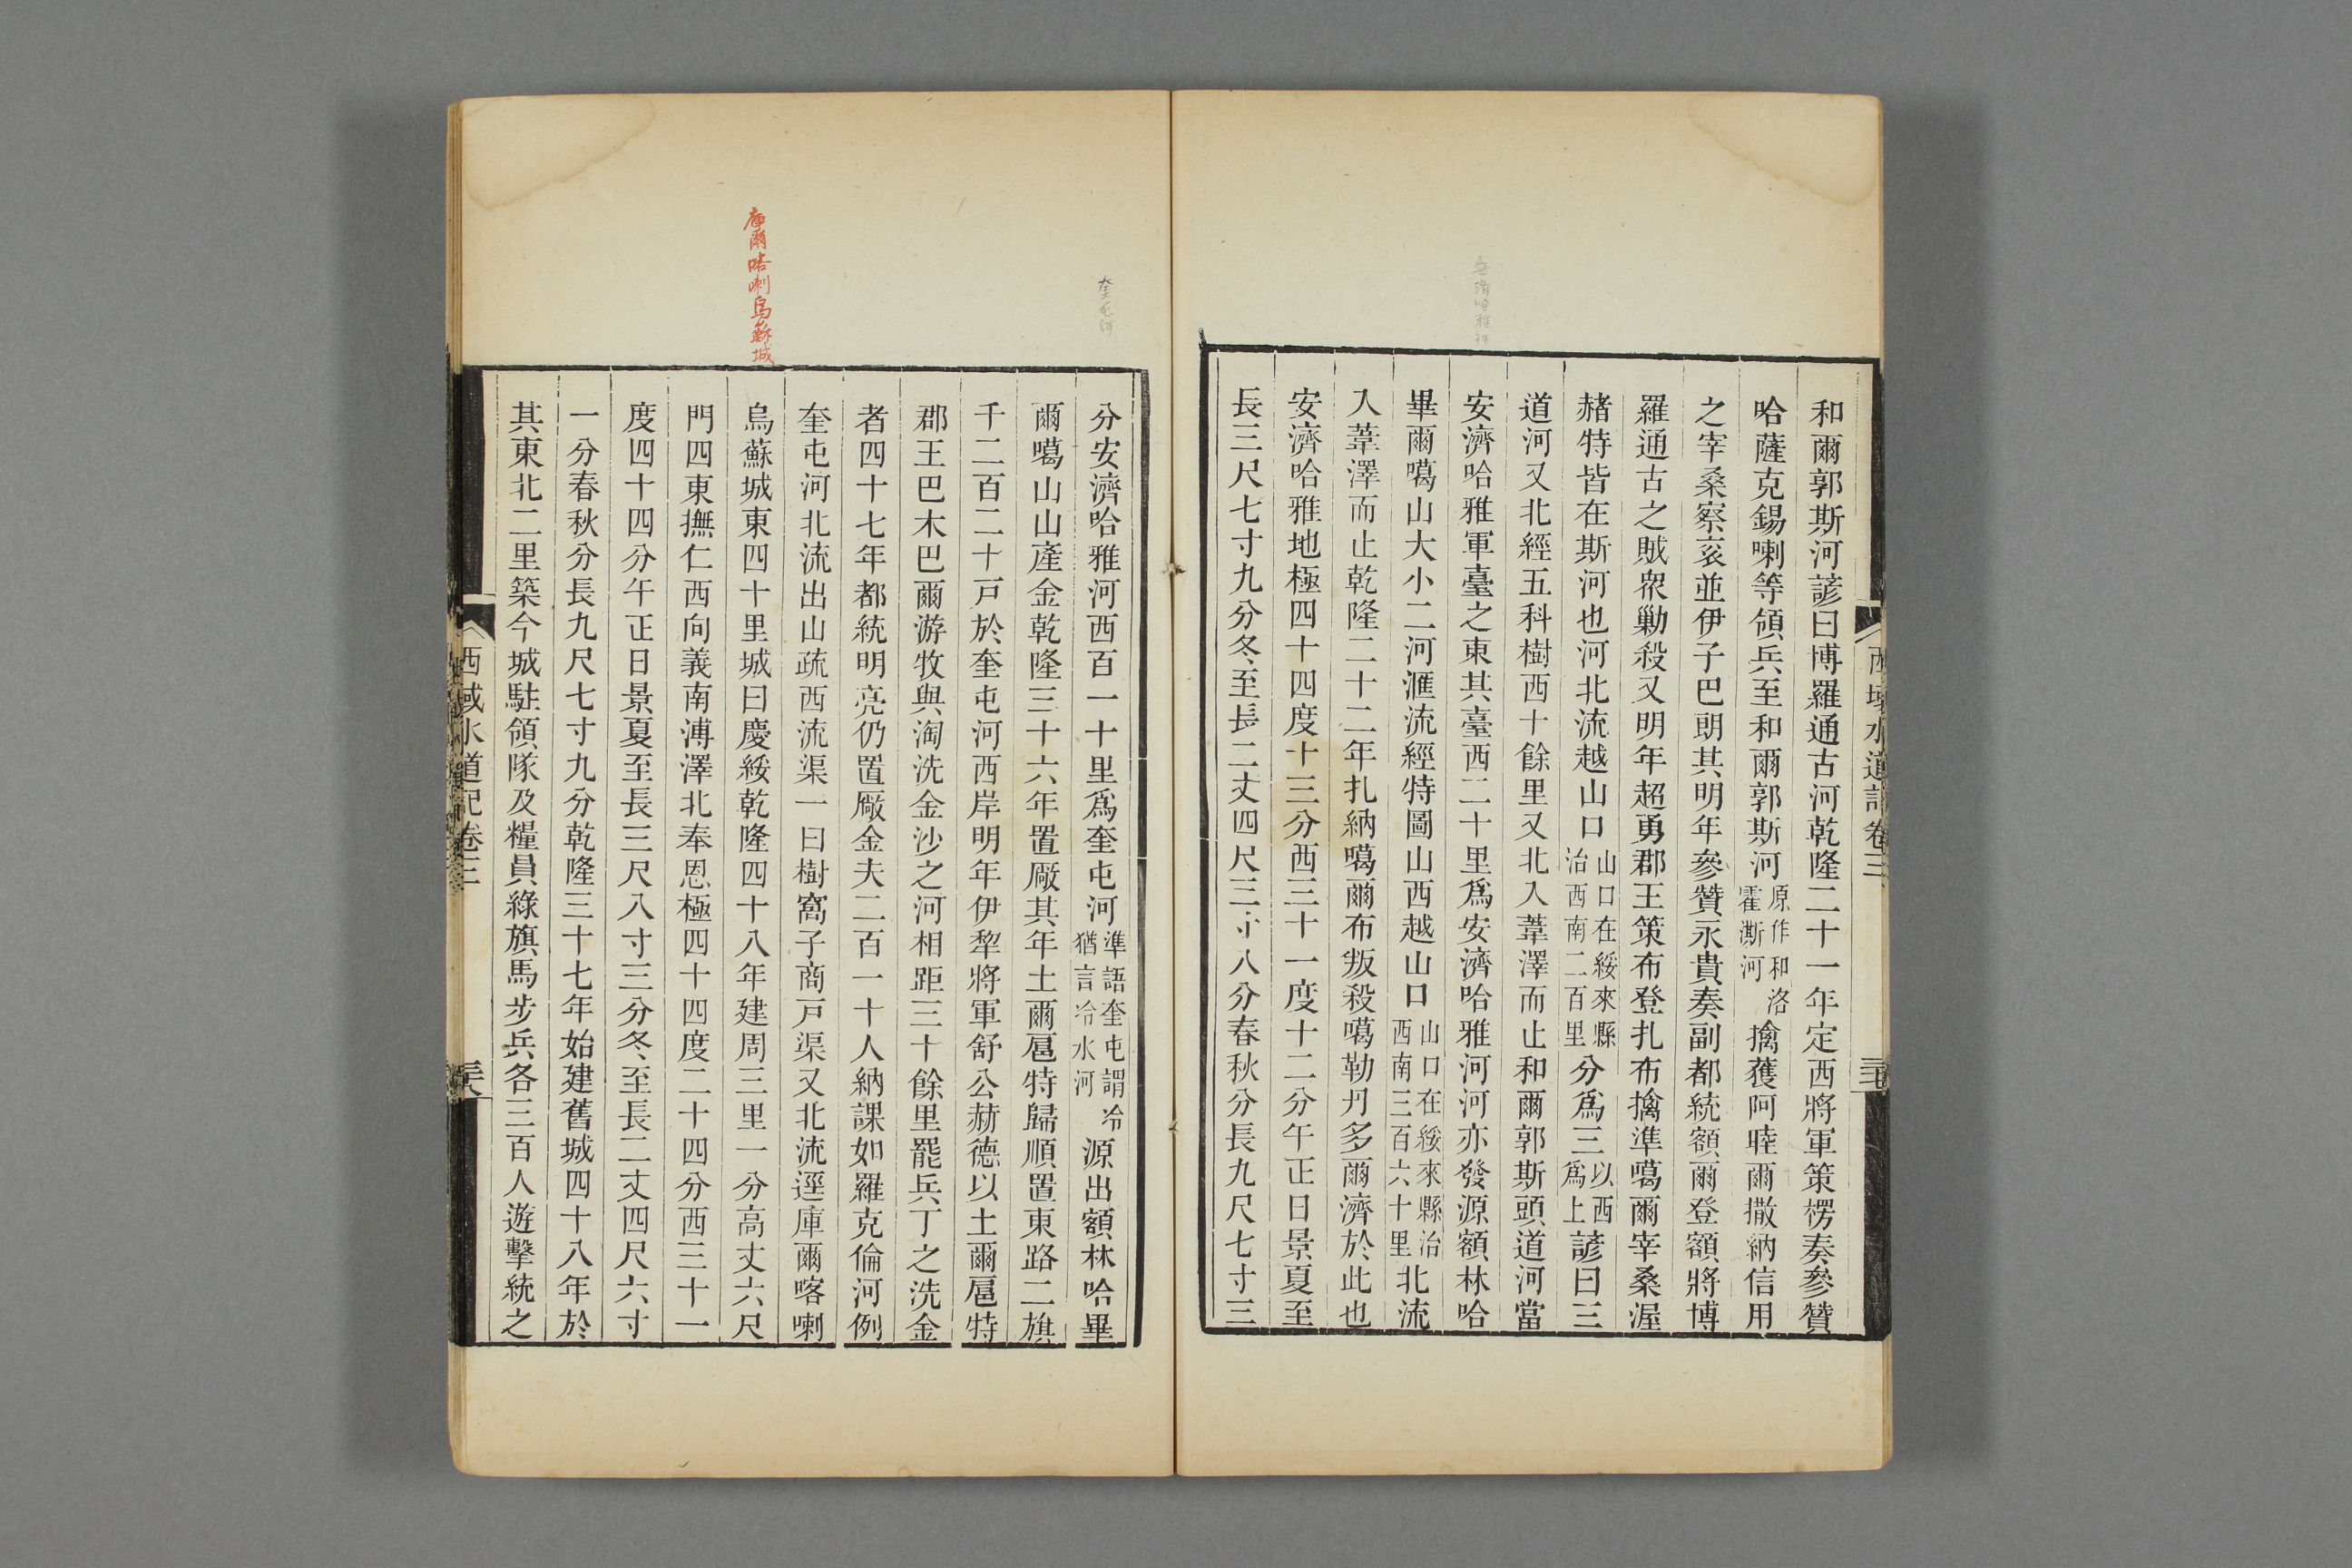 西域水道記卷三
三十七
安濟哈雅河
和爾郭斯河諺曰博羅通古河乾隆二十一年定西將軍策楞奏參贊
哈薩克錫喇等領兵至和爾郭斯河原作和洛霍澌河擒獲阿睦爾撒納信用
之宰桑察袞並伊子巴朗其明年參贊永貴奏副都統額爾登額將博
羅通古之賊眾勦殺又明年超勇郡王策布登扎布擒準噶爾宰桑渥
赭特皆在斯河也河北流越山口山口在綏來縣治西南二百里分爲三以西爲上諺曰三
道河又北經五科樹西十餘里又北入葦澤而止和爾郭斯頭道河當
安濟哈雅軍臺之東其臺西二十里爲安濟哈雅河河亦發源額林哈
畢爾噶山大小二河滙流經特圖山西越山口山口在綏來縣治西南三百六十里北流
入葦澤而止乾隆二十二年扎納噶爾布叛殺噶勒丹多爾濟於此也
安濟哈雅地極四十四度十三分西三十一度十二分午正日景夏至
長三尺七寸九分冬至長二丈四尺三寸八分春秋分長九尺七寸三
奎屯河
庫爾喀喇烏蘇城
分安濟哈雅河西百一十里爲奎屯河準語奎屯謂冷猶言冷水河源出額林哈畢
爾噶山山產金乾隆三十六年置厰其年土爾扈特歸順置東路二旗
千二百二十戸於奎屯河西岸明年伊犂將軍舒公赫德以土爾扈特
郡王巴木巴爾游牧與淘洗金沙之河相距三十餘里罷兵丁之洗金
者四十七年都統明亮仍置厰金夫二百一十人納課如羅克倫河例
奎屯河北流出山疏西流渠一曰樹窩子商戸渠又北流逕庫爾喀喇
烏蘇城東四十里城曰慶綏乾隆四十八年建周三里一分高丈六尺
門四東撫仁西向義南溥澤北奉恩極四十四度二十四分西三十一
度四十四分午正日景夏至長三尺八寸三分冬至長二丈四尺六寸
一分春秋分長九尺七寸九分乾隆三十七年始建舊城四十八年於
其東北二里築今城駐領隊及糧員綠旗馬步兵各三百人遊擊統之
西域水道記卷三
三十八